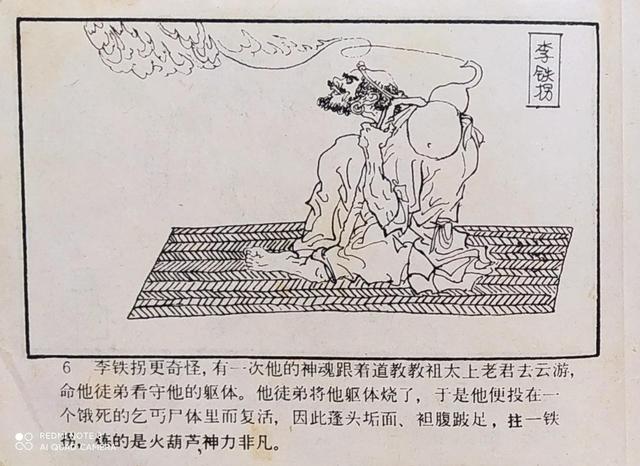 李铁拐
6 李铁拐更奇怪,有一次他的神魂跟着道教教祖太上老君去云游,
命他徒弟看守他的躯体。他徒弟将他躯体烧了,于是他便投在一
个饿死的乞丐尸体里而复活,因此蓬头垢面、袒腹跛足,拄一铁
拐,炼的是火葫芦,神力非凡。
REDMI NOTE
AI QUAD CAMERA